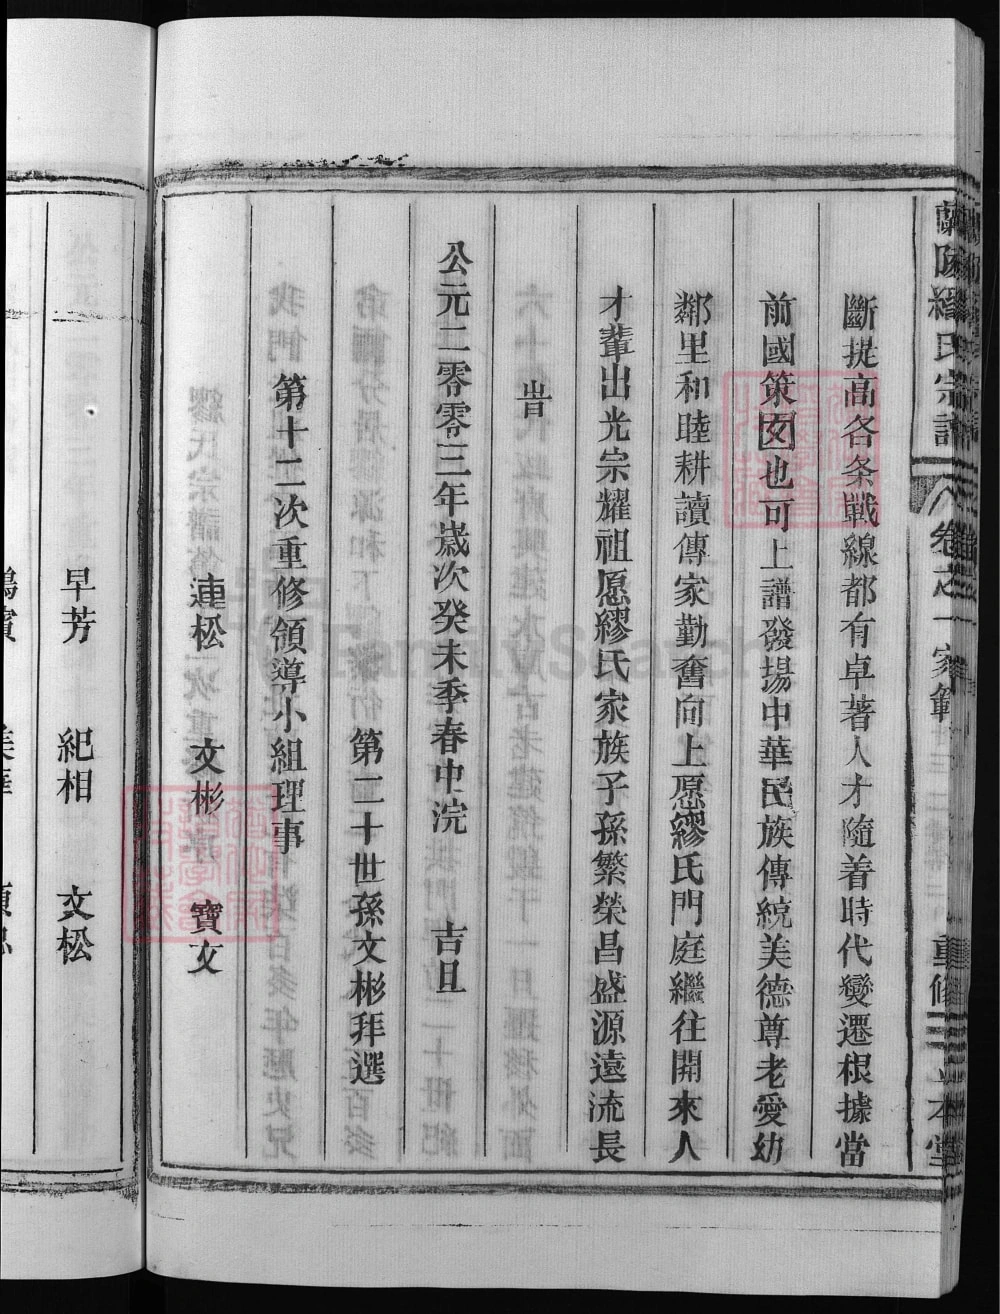 蘭陵繆氏宗譜 卷之一 家範 重修 立本堂
斷提高各条戰線都有卓著人才隨着時代變遷根據當
前國策女也可上譜發揚中華民族傳統美德尊老愛幼
鄰里和睦耕讀傳家勤奮向上愿繆氏門庭繼往開來人
才輩出光宗耀祖愿繆氏家族子孫繁榮昌盛源遠流長
旹
公元二零零三年歲次癸未季春中浣 吉旦
第二十世孫文彬拜選
第十二次重修領導小組理事
連松 文彬 寶文
早芳 紀相 文松
FamilySearch